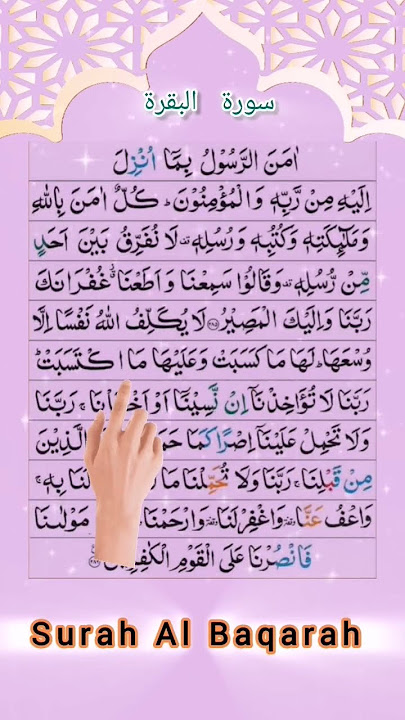 سورة البقرة
اٰمَنَ الرَّسُوْلُ بِمَاۤ اُنْزِلَ
اِلَيْهِ مِنْ رَّبِّهٖ وَالْمُؤْمِنُوْنَ ؕ كُلٌّ اٰمَنَ بِاللّٰهِ
وَمَلٰٓئِكَتِهٖ وَكُتُبِهٖ وَرُسُلِهٖ لَا نُفَرِّقُ بَيْنَ اَحَدٍ
مِّنْ رُّسُلِهٖ وَقَالُوْا سَمِعْنَا وَاَطَعْنَا غُفْرَانَكَ
رَبَّنَا وَاِلَيْكَ الْمَصِيْرُ ﴿۲۸۵﴾ لَا يُكَلِّفُ اللّٰهُ نَفْسًا اِلَّا
وُسْعَهَا ؕ لَهَا مَا كَسَبَتْ وَعَلَيْهَا مَا اكْتَسَبَتْ ؕ
رَبَّنَا لَا تُؤَاخِذْنَاۤ اِنْ نَّسِيْنَاۤ اَوْ رَبَّنَا
وَلَا تَحْمِلْ عَلَيْنَاۤ اِصْرًا كَمَا الَّذِيْنَ
مِنْ قَبْلِنَا ۚ رَبَّنَا وَلَا تُحَمِّلْنَا مَا بِهٖ ۚ
وَاعْفُ عَنَّا وَاغْفِرْ لَنَا وَارْحَمْنَا مَوْلٰىنَا
فَانْصُرْنَا عَلَى الْقَوْمِ الْكٰفِرِيْنَ ﴿۲۸۶﴾
Surah Al Baqarah